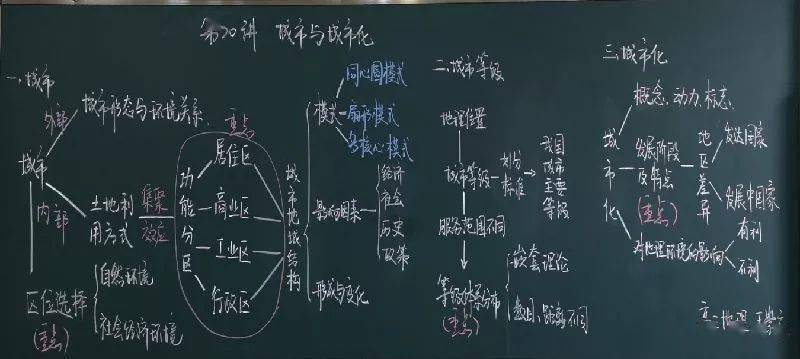 第20讲 城市与城市化
一.城市
外部
城市形态与环境关系
城市
内部
土地利
用方式
集聚
效应
重点
功能分区
居住区
商业区
工业区
行政区
区位选择
(重点)
自然环境
社会经济环境
城市地域结构
模式
同心圆模式
扇形模式
多核心模式
影响因素
经济
社会
历史
政策
形成与变化
二.城市等级
地理位置
城市等级
划分
标准
我国城市主要等级
服务范围不同
等级体系分布
(重点)
嵌套理论
数目、距离不同
三.城市化
城市化
概念、动力、标志、
发展阶段
及特点
(重点)
地区差异
发达国家
发展中国家
对地理环境的影响
有利
不利